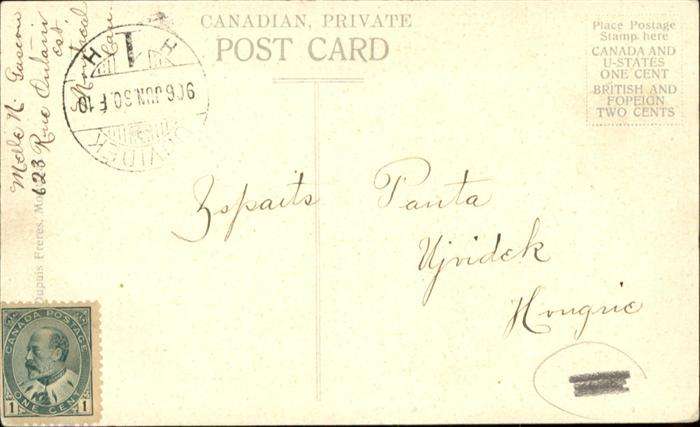 CANADIAN, PRIVATE
POST CARD
Place Postage
Stamp here
CANADA AND
U-STATES
ONE CENT
BRITISH AND
FOPEIGN
TWO CENTS
Melle N. Gascon
623 Rue Ontario
est.
Montreal
Can.
906 JUN. 30. F
Zspaits Panta
Ujvidek
Hongrie
Dupuis Freres, Mo
CANADA POSTAGE
1 ONE CENT 1